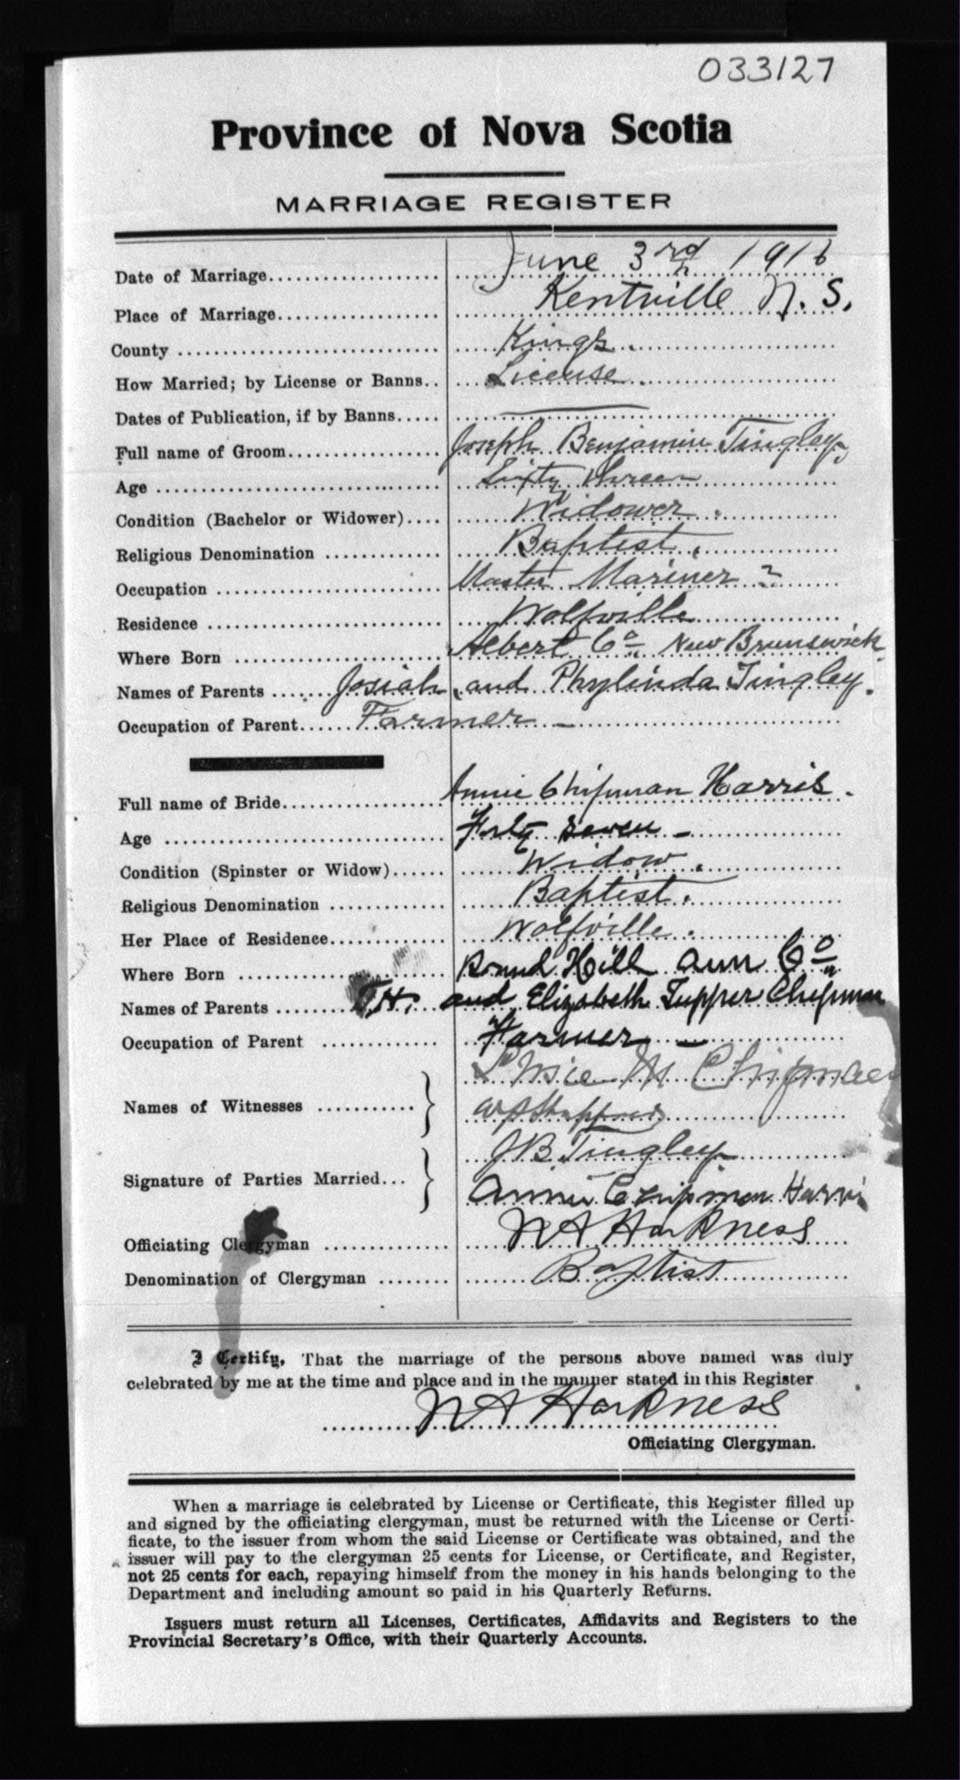 033127
Province of Nova Scotia
MARRIAGE REGISTER
Date of Marriage.................... June 3rd 1916
Place of Marriage................... Kentville N. S.
County ............................. Kings.
How Married; by License or Banns.. License.
Dates of Publication, if by Banns.....
Full name of Groom.................. Joseph Benjamin Tingley,
Age ................................ Sixty three
Condition (Bachelor or Widower).... Widower.
Religious Denomination ............. Baptist.
Occupation ......................... Master Mariner
Residence .......................... Wolfville
Where Born ......................... Albert Co. New Brunswick
Names of Parents ...... Josiah and Phylinda Tingley.
Occupation of Parent..... Farmer —
Full name of Bride.................. Annie Chipman Harris.
Age ................................ Forty Seven —
Condition (Spinster or Widow)...... Widow.
Religious Denomination ............. Baptist.
Her Place of Residence.............. Wolfville.
Where Born ......................... Round Hill Ann Co
Names of Parents ........ and Elizabeth Tupper Chipman
Occupation of Parent ............... Farmer —
M Chipman
Names of Witnesses ...........
J B. Tingley
Signature of Parties Married...
Annie Chipman Harris
Officiating Clergyman .............. N A Harkness
Denomination of Clergyman ........ Baptist
I Certify, That the marriage of the persons above named was duly
celebrated by me at the time and place and in the manner stated in this Register
N A Harkness
Officiating Clergyman.
When a marriage is celebrated by License or Certificate, this Register filled up
and signed by the officiating clergyman, must be returned with the License or Certi-
ficate, to the issuer from whom the said License or Certificate was obtained, and the
issuer will pay to the clergyman 25 cents for License, or Certificate, and Register,
not 25 cents for each, repaying himself from the money in his hands belonging to the
Department and including amount so paid in his Quarterly Returns.
Issuers must return all Licenses, Certificates, Affidavits and Registers to the
Provincial Secretary's Office, with their Quarterly Accounts.